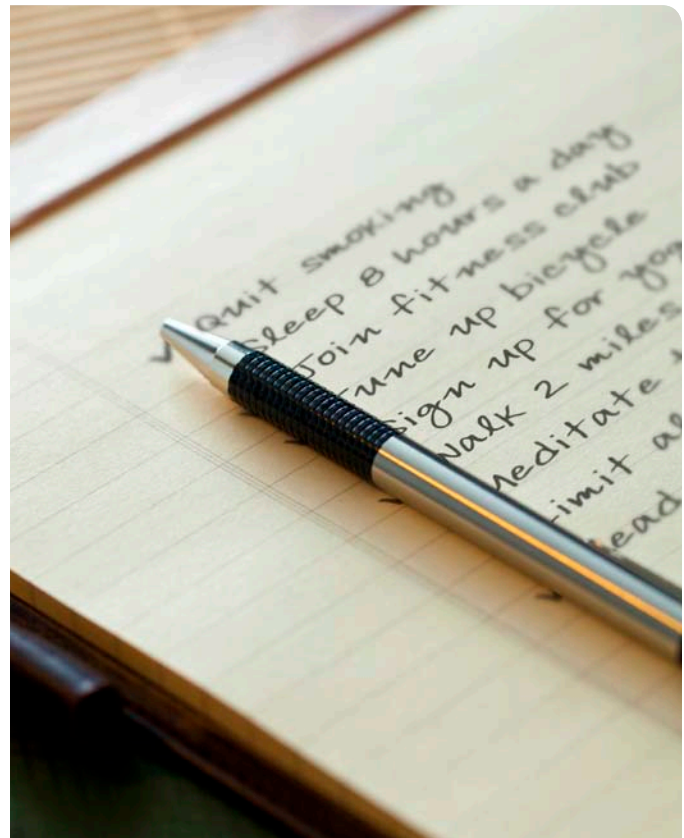 Quit smoking
Sleep 8 hours a day
Join fitness club
Tune up bicycle
Sign up for
Walk 2 miles
Meditate